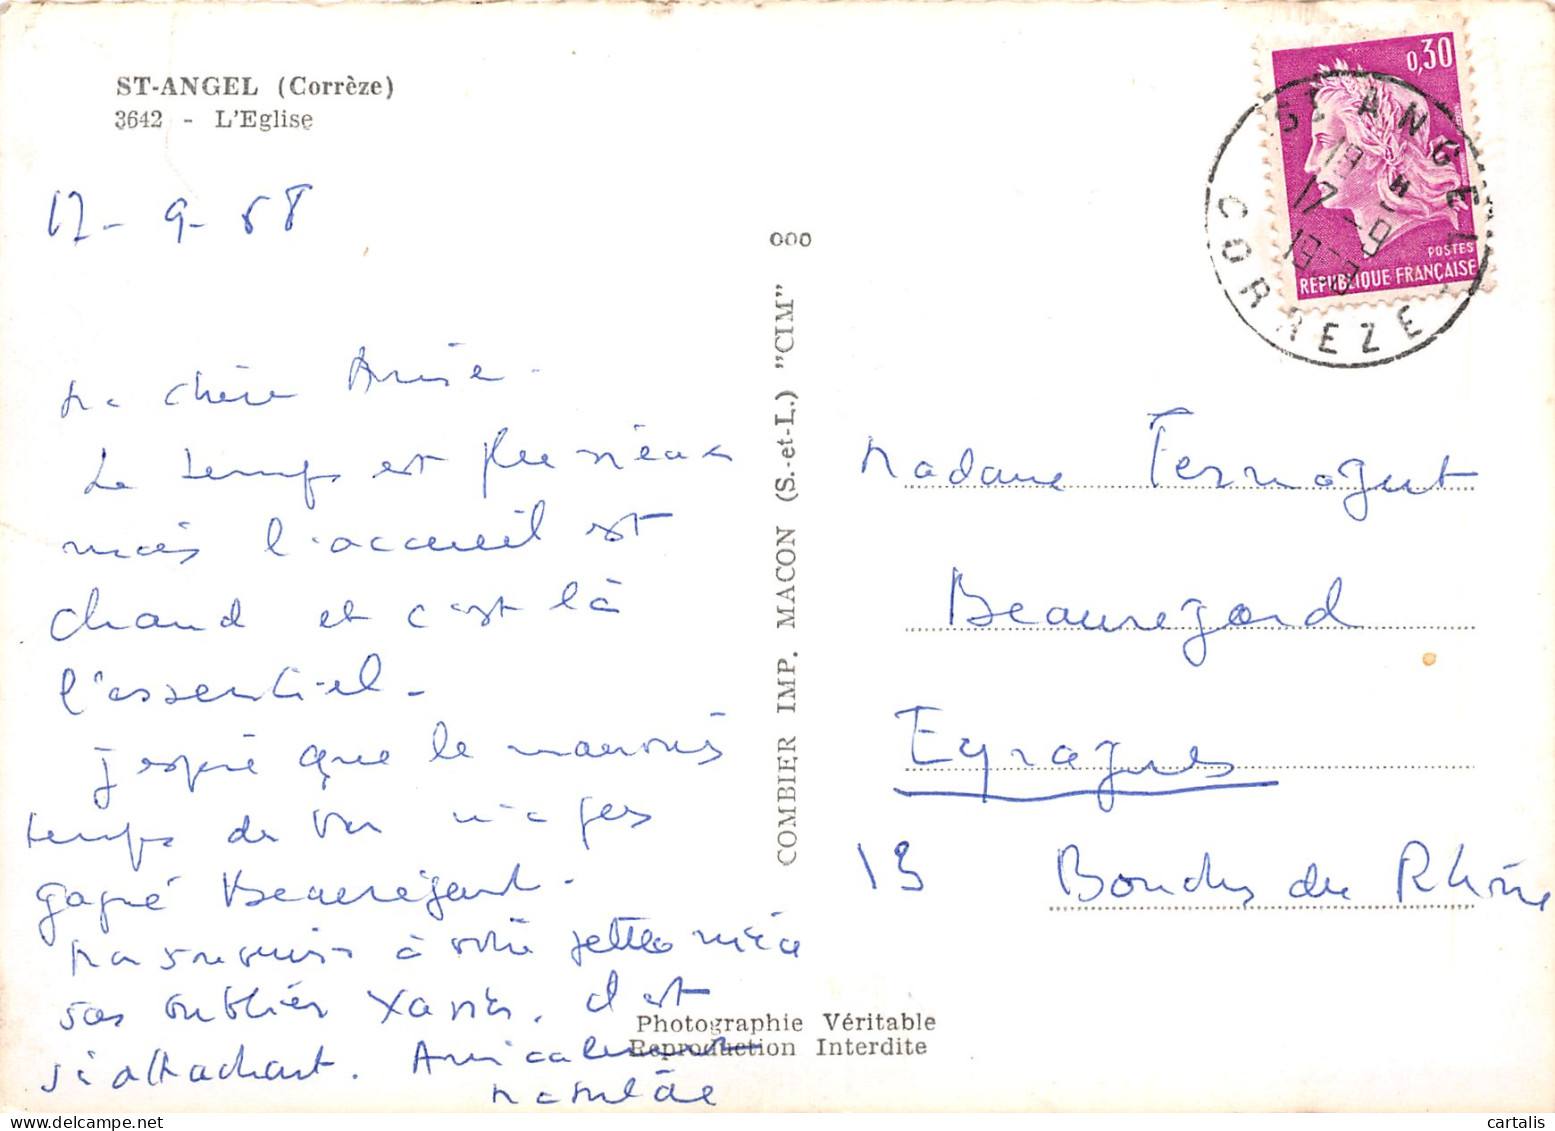 ST-ANGEL (Corrèze)
3642 - L'Eglise
17-9-68
Ma chère
Le temps est pluvieux
mais l'accueil est
chaud et c'est là
l'essentiel.
J'espère que le mauvais
temps de n'a pas
gagné Beauregard.
à votre
sans oublier Xavier. Il est
si attachant. Amicalement
COMBIER IMP. MACON (S.-et-L.) "CIM"
000
Photographie Véritable
Reproduction Interdite
0,30
POSTES
REPUBLIQUE FRANÇAISE
ST ANGEL
19 H
17 - 9
CORREZE
Madame Fernagut
Beauregard
Eyragues
13 Bouches du Rhône
cartalis